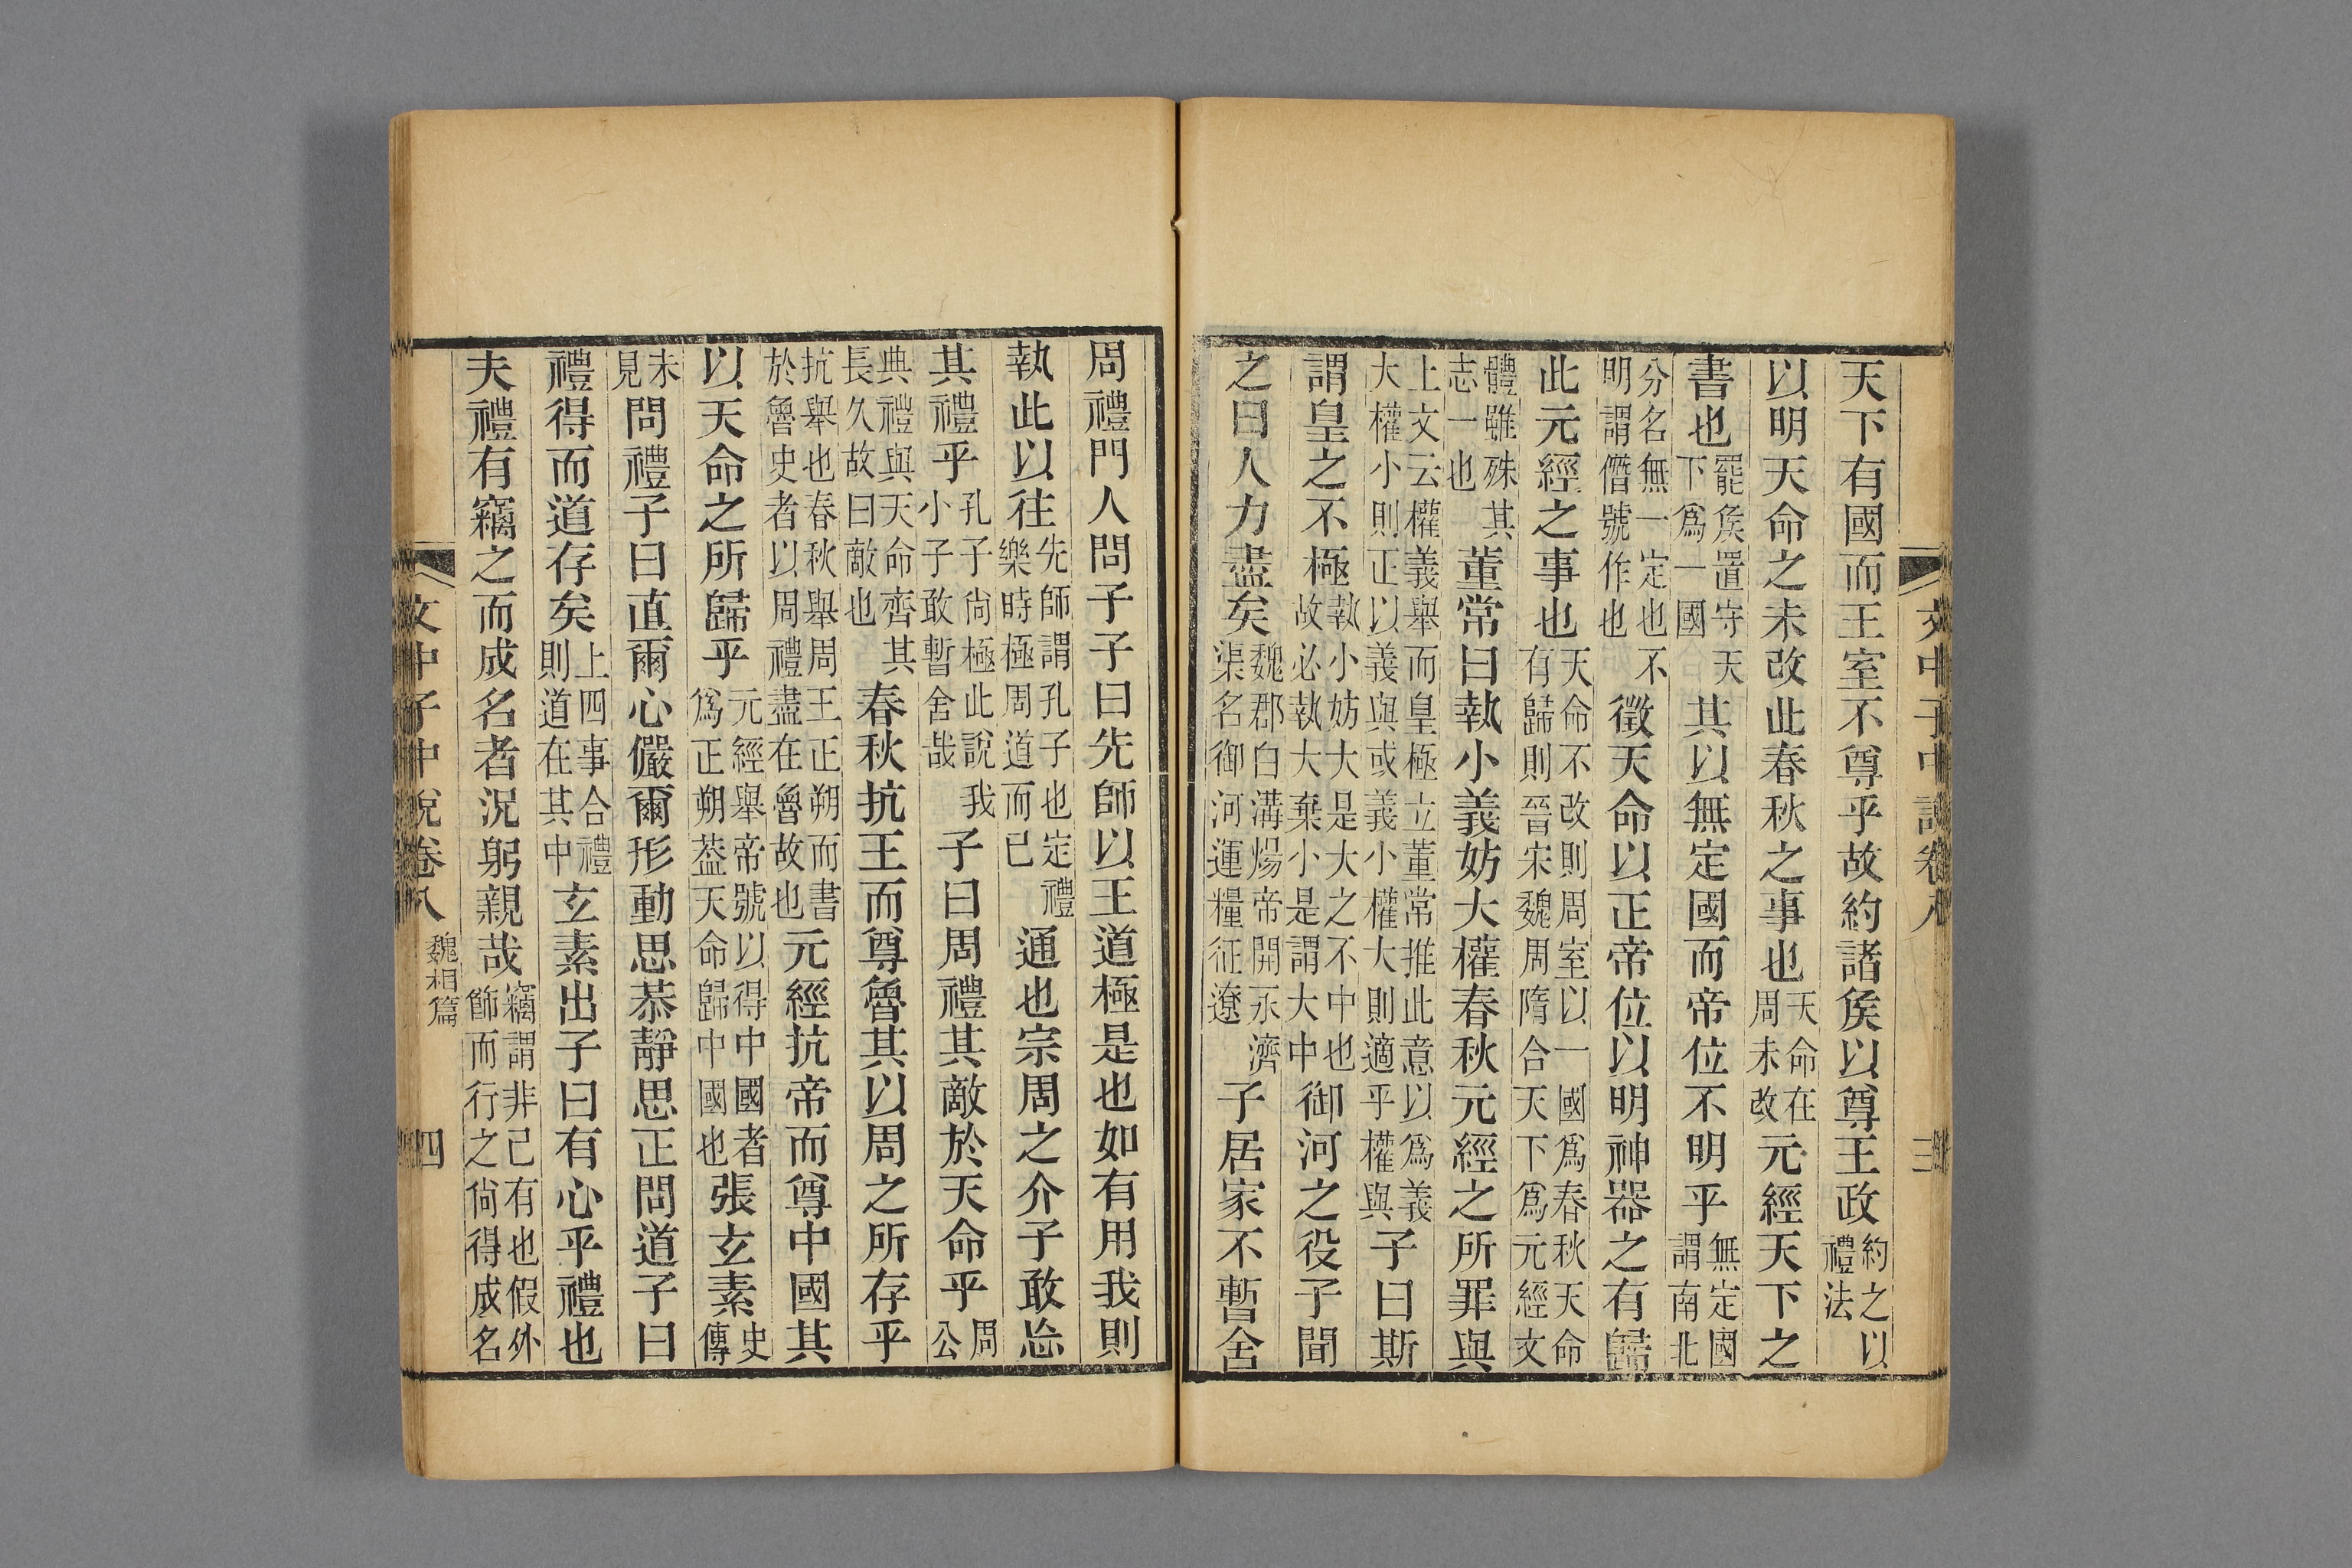 文中子中說卷八
三
天下有國而王室不尊乎故約諸矦以尊王政約之以禮法
以明天命之未改此春秋之事也天命在周未改元經天下之
書也罷矦置守天下爲一國其以無定國而帝位不明乎無定國謂南北
分名無一定也不明謂僭號作也徵天命以正帝位以明神器之有歸
此元經之事也天命不改則周室以一國爲春秋天命有歸則晉宋魏周隋合天下爲元經文
體雖殊其志一也董常曰執小義妨大權春秋元經之所罪與
上文云權義舉而皇極立董常推此意以爲義大權小則正以義與或義小權大則適乎權與子曰斯
謂皇之不極執小妨大是大之不中也故必執大棄小是謂大中御河之役子聞
之曰人力盡矣魏郡白溝煬帝開永濟渠名御河運糧征遼子居家不暫舍
周禮門人問子子曰先師以王道極是也如有用我則
執此以往先師謂孔子也定禮樂時極周道而已通也宗周之介子敢忘
其禮乎孔子尙極此說我小子敢暫舍哉子曰周禮其敵於天命乎周公
典禮與天命齊其長久故曰敵也春秋抗王而尊魯其以周之所存乎
抗舉也春秋舉周王正朔而書於魯史者以周禮盡在魯故也元經抗帝而尊中國其
以天命之所歸乎元經舉帝號以得中國者爲正朔葢天命歸中國也張玄素史傳
未見問禮子曰直爾心儼爾形動思恭靜思正問道子曰
禮得而道存矣上四事合禮則道在其中玄素出子曰有心乎禮也
夫禮有竊之而成名者況躬親哉竊謂非己有也假外飾而行之尙得成名
文中子中說卷八
魏相篇
四